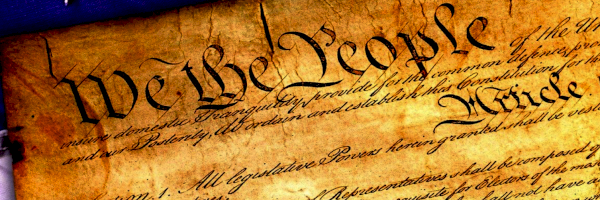 We the People of the Un
insure domestic Tranquility, provide for the common defence, pro
and our Posterity, do ordain and establish this Constitution for th
Article
1. All legislative Powers herein granted shall be vest
Representatives shall be composed of
requisite for Electors of the mos
shall not have a